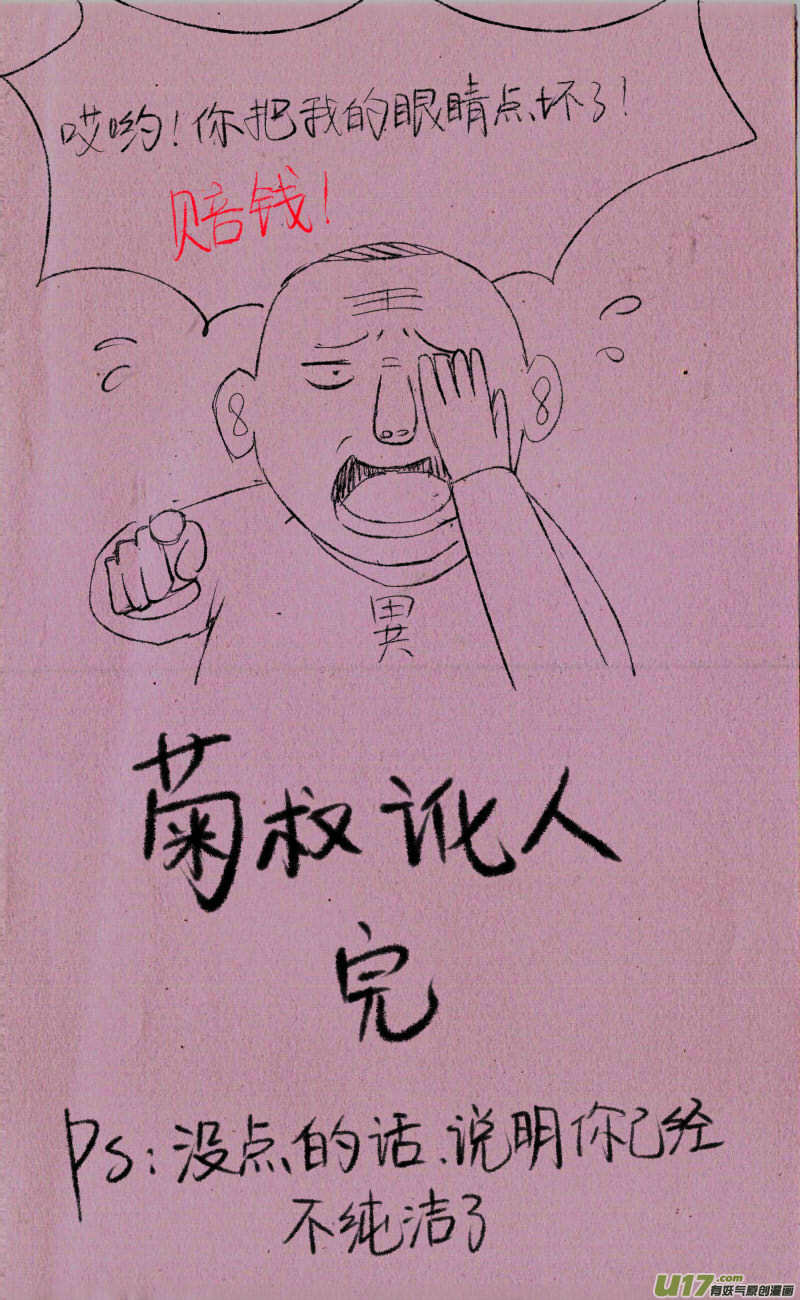 哎哟!你把我的眼睛点坏了!
赔钱!
異
菊叔讹人
完
Ps:没点的话.说明你已经
不纯洁了
U17.com
有妖气原创漫画